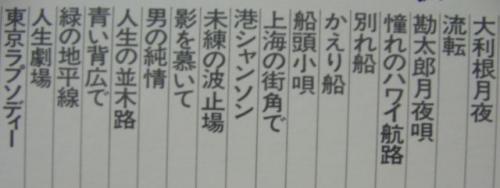 大利根月夜
流転
勘太郎月夜唄
憧れのハワイ航路
別れ船
かえり船
船頭小唄
上海の街角で
港シャンソン
未練の波止場
影を慕いて
男の純情
人生の並木路
青い背広で
緑の地平線
人生劇場
東京ラプソディー